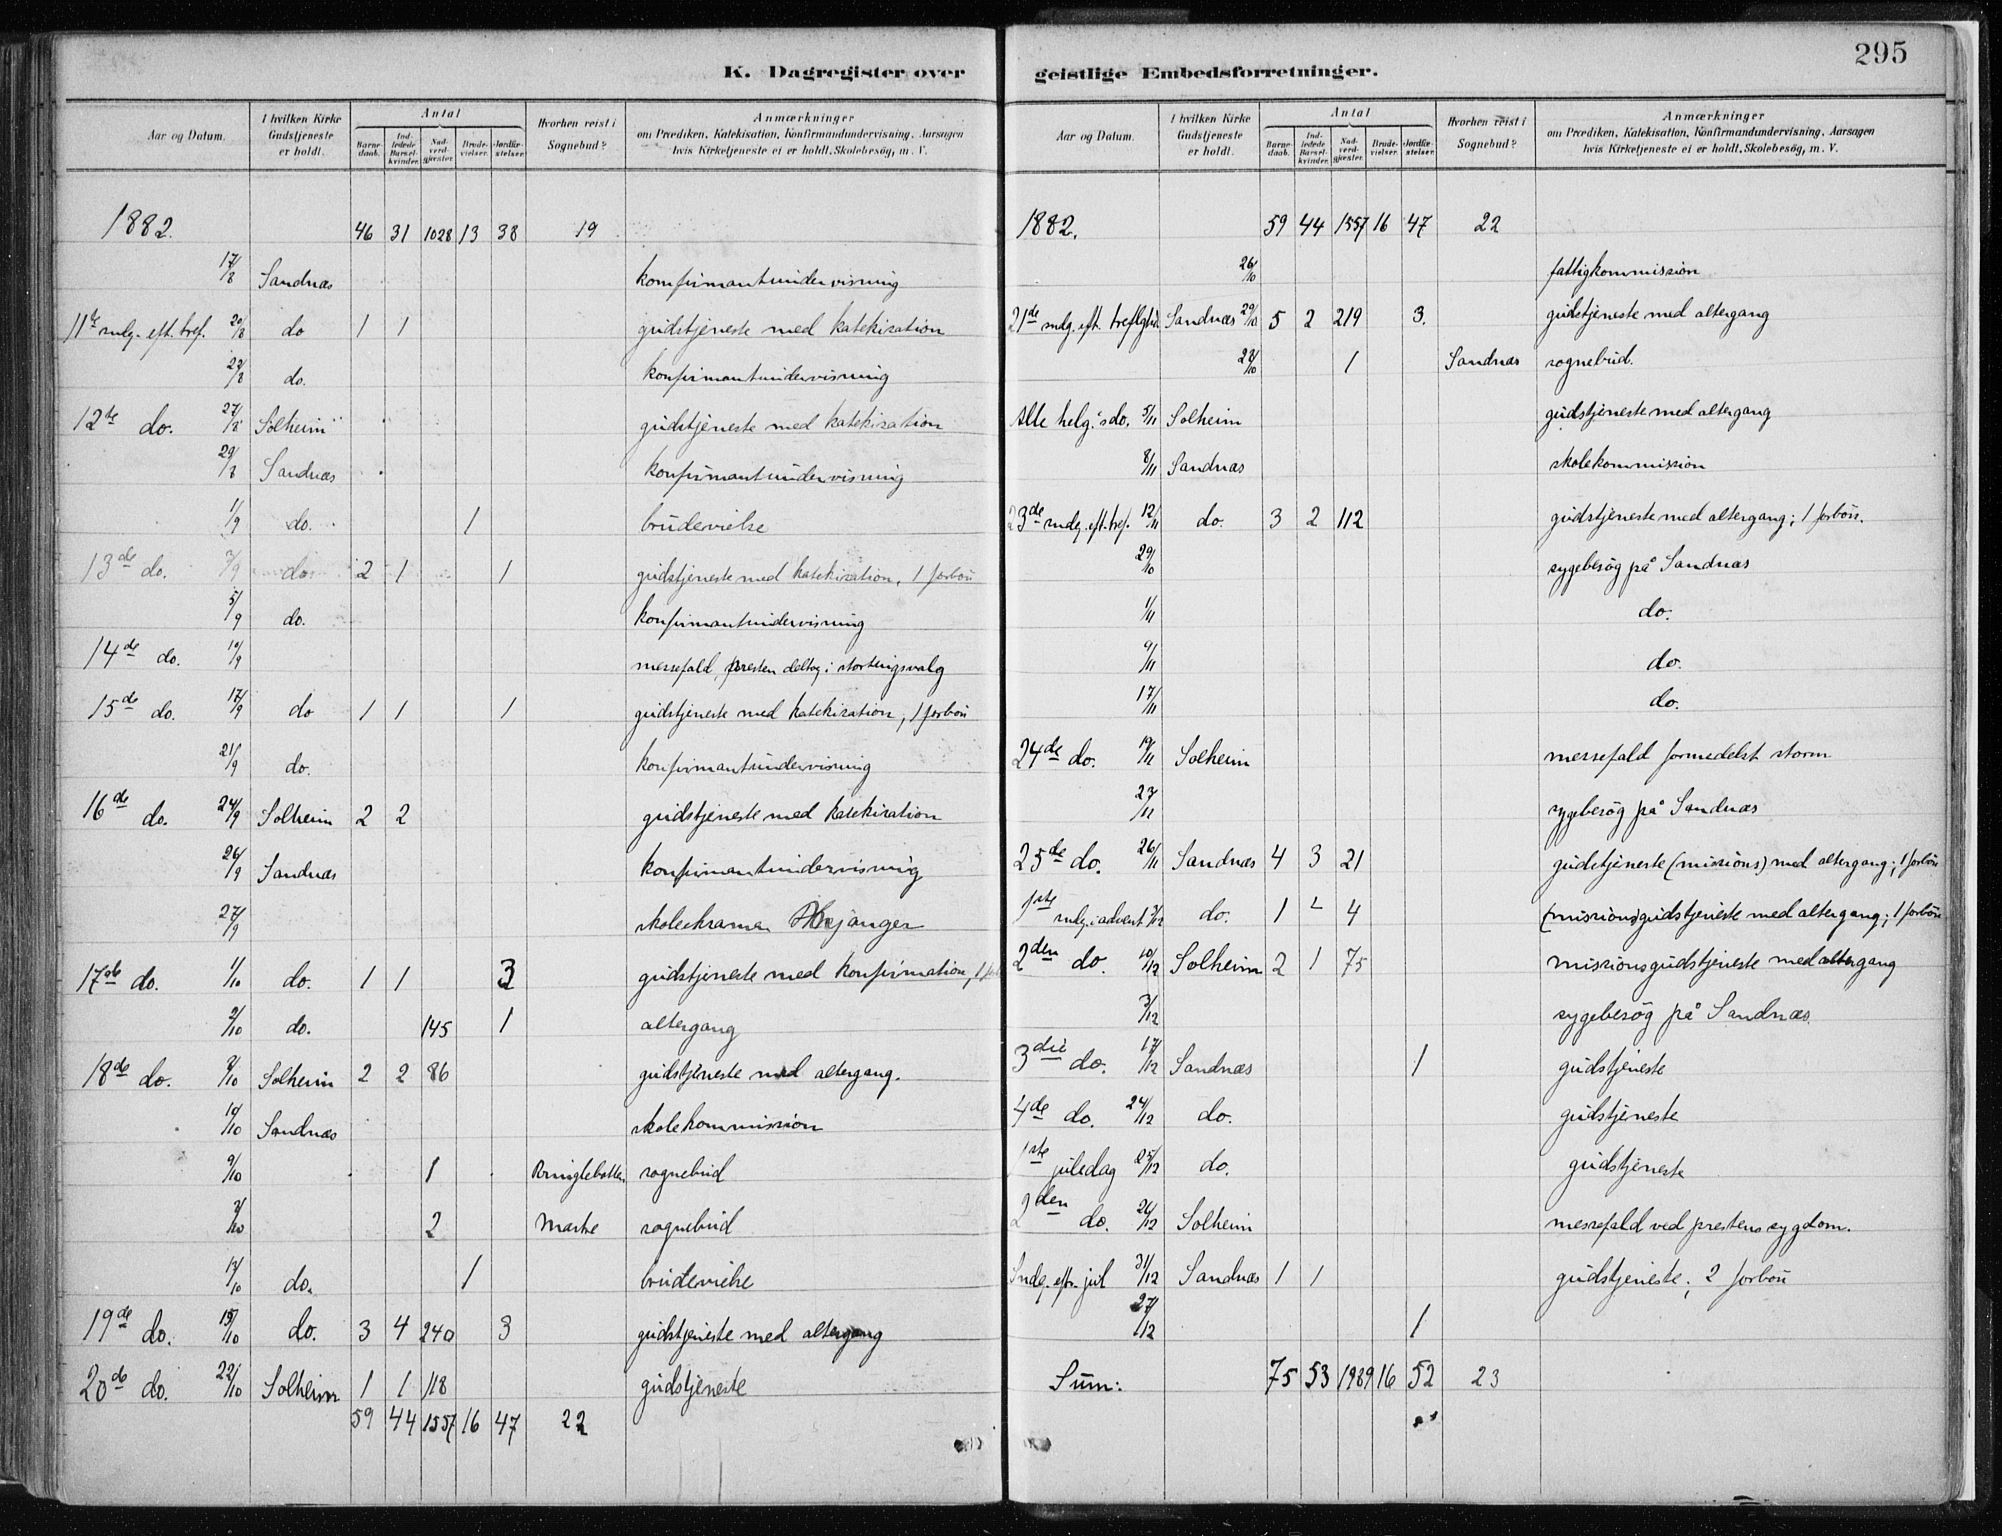 K. Dagregister over
Aar og Datum. I hvilken Kirke Gudstjeneste er holdt. Antal Barnedaab. Indledede Barselkvinder. Nadverdgjester. Brudevielser. Jordfæstelser. Hvorhen reist i Sognebud? Anmærkninger om Prædiken, Katekisation, Konfirmandundervisning, Aarsagen hvis Kirketjeneste ei er holdt, Skolebesøg, m. V.
1882. 46 31 1028 13 38 19
17/8 Sandnæs konfirmantundervisning
11te søndg. eft. tref. 20/8 do 1 1 gudstjeneste med katekisation
22/8 do. konfirmantundervisning
12te do. 27/8 Solheim gudstjeneste med katekisation
29/8 Sandnæs konfirmantundervisning
1/9 do. 1 brudevielse
13de do. 3/9 do 2 1 1 gudstjeneste med katekisation, 1 forbön
5/9 do. konfirmantundervisning
14de do. 10/9 messefald, presten deltog i stortingsvalg
15de do. 17/9 do 1 1 1 gudstjeneste med katekisation, 1 forbön
21/9 do. konfirmantundervisning
16de do. 24/9 Solheim 2 2 gudstjeneste med katekisation
26/9 Sandnæs konfirmantundervisning
27/9 skoleeksamen
17de do. 1/10 do. 1 1 3 gudstjeneste med konfirmation, 1
2/10 do. 145 1 altergang
18de do. 8/10 Solheim 2 2 86 gudstjeneste med altergang.
10/10 Sandnæs skolekommission
9/10 1 Bringlebotten sognebud
3/10 2 Maske sognebud
13/10 do. 1 brudevielse
19de do. 15/10 do. 3 4 240 3 gudstjeneste med altergang
20de do. 22/10 Solheim 1 1 118 gudstjeneste
59 44 1557 16 47 22
295
geistlige Embedsforretninger.
Aar og Datum. I hvilken Kirke Gudstjeneste er holdt. Antal Barnedaab. Indledede Barselkvinder. Nadverdgjester. Brudevielser. Jordfæstelser. Hvorhen reist i Sognebud? Anmærkninger om Prædiken, Katekisation, Konfirmandundervisning, Aarsagen hvis Kirketjeneste ei er holdt, Skolebesøg, m. V.
1882. 59 44 1557 16 47 22
26/10 fattigkommission
21de søndg. eft. treflgh. Sandnæs 29/10 5 2 219 3. gudstjeneste med altergang
22/10 1 Sandnæs sognebud.
Alle helg.'s do. 5/11 Solheim gudstjeneste med altergang
8/11 Sandnæs skolekommission
23de søndg. eft. tref. 12/11 do. 3 2 112 gudstjeneste med altergang; 1 forbön.
29/10 sygebesög på Sandnæs
1/11 do.
9/11 do.
17/11 do.
24de do. 19/11 Solheim messefald formedelst storm
23/11 sygebesög på Sandnæs
25de do. 26/11 Sandnæs 4 3 21 gudstjeneste (missions) med altergang; 1 forbön
1ste søndg. i advent 3/12 do. 1 4 (missions)gudstjeneste med altergang; 1 forbön
2den do. 10/12 Solheim 2 1 75 missionsgudstjeneste med altergang
3/12 sygebesög på Sandnæs
3die do. 17/12 Sandnæs 1 gudstjeneste
4de do. 24/12 do. gudstjeneste
1ste juledag 25/12 do. gudstjeneste
2den do. 26/12 Solheim messefald ved prestens sygdom.
Sndg. eftr. jul 31/12 Sandnæs 1 1 gudstjeneste; 2 forbön
27/12 1
Sum: 75 53 1989 16 52 23